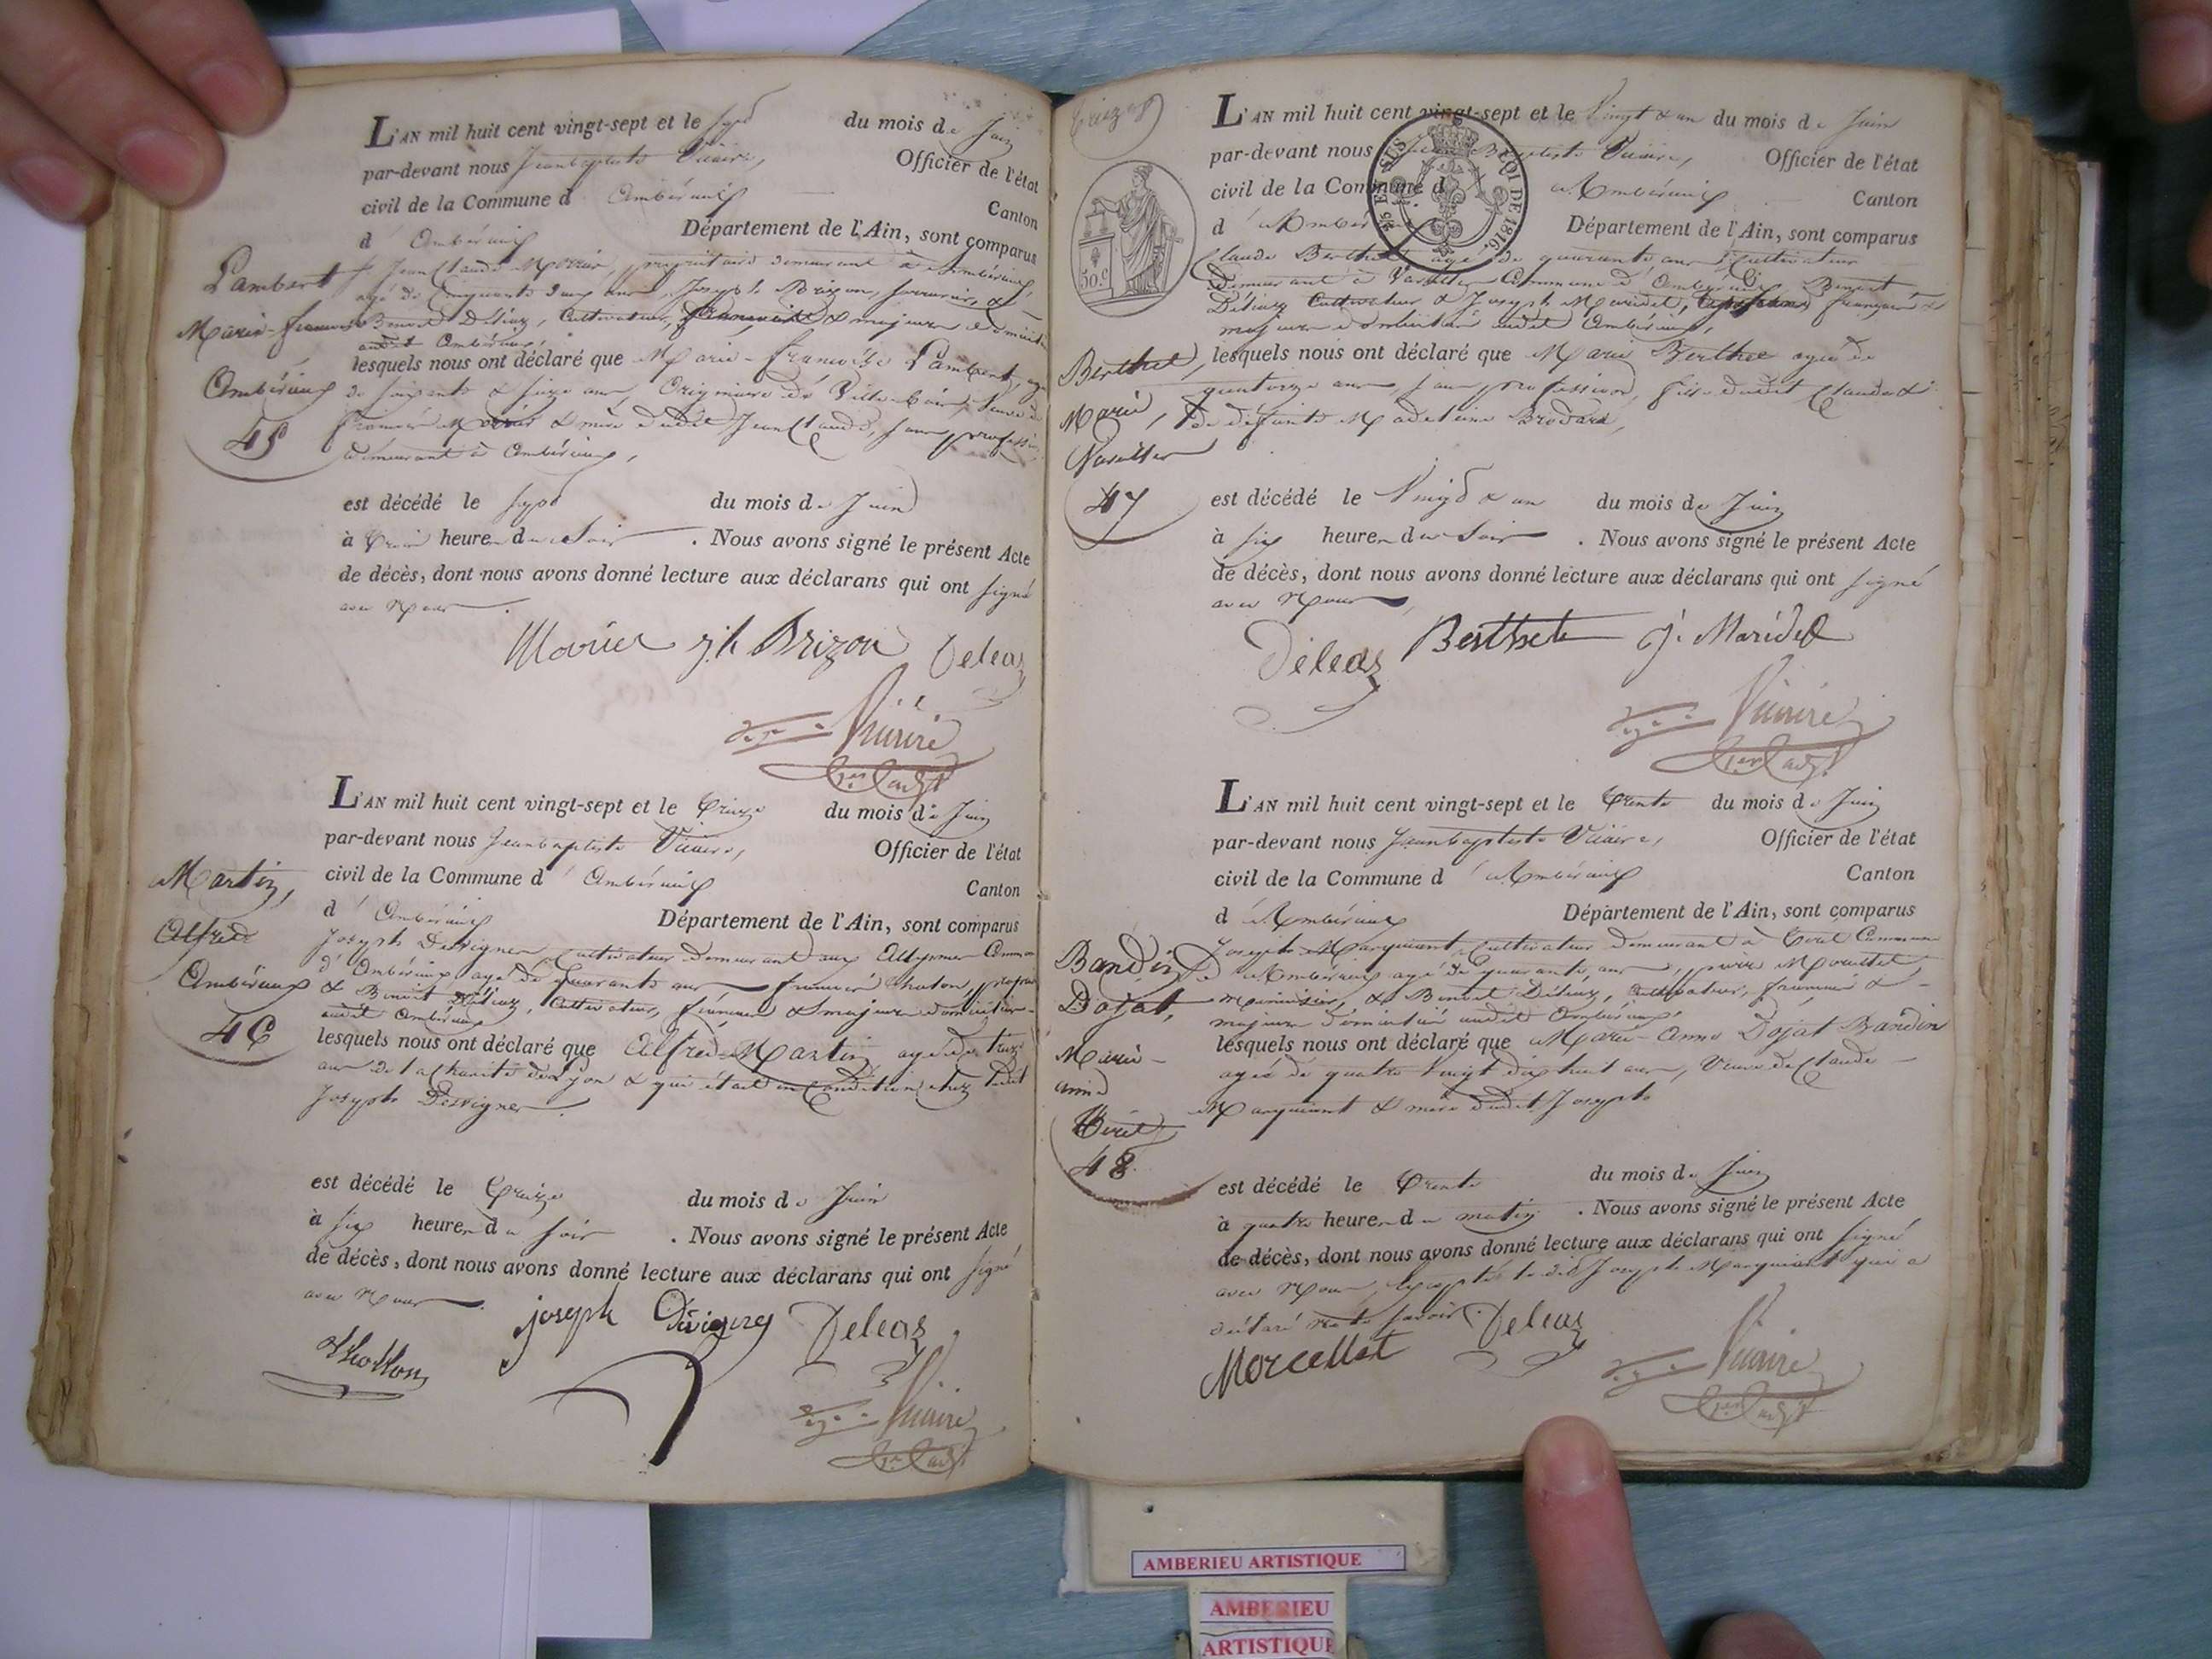 L'AN mil huit cent vingt-sept et le sept du mois de Juin
par-devant nous Jeanbaptiste Vicaire, Officier de l'état
civil de la Commune d'Ambérieux Canton
d'Ambérieux Département de l'Ain, sont comparus
Lambert
Marie-françoise
Ambérieux
45
Jean Claude propriétaire demeurant à Ambérieux,
agé de Cinquante deux ans, Joseph Brizon, &
Benoit Déléaz, Cultivateur, & majeurs domiciliés
audit Ambérieux,
lesquels nous ont déclaré que Marie-françoise Lambert, agée
de soixante & seize ans, Originaire de veuve de
& mère dudit Jean Claude, sans profession
demeurant à Ambérieux,
est décédé le sept du mois de Juin
à trois heures du soir . Nous avons signé le présent Acte
de décès, dont nous avons donné lecture aux déclarans qui ont signé
avec Nous.
Morier jh Brizon Deleaz
Vicaire
L'AN mil huit cent vingt-sept et le treize du mois de Juin
par-devant nous Jeanbaptiste Vicaire, Officier de l'état
civil de la Commune d'Ambérieux Canton
d'Ambérieux Département de l'Ain, sont comparus
Martin,
Alfred
Ambérieux
46
Joseph Desvignes, Cultivateur demeurant aux Allymes Commune
d'Ambérieux agé de quarante ans
& Benoit Déléaz, Cultivateur, & majeurs domiciliés
audit Ambérieux
lesquels nous ont déclaré que Alfred Martin agé de treize
ans de la Charité de Lyon & qui était en Condition chez ledit
Joseph Desvignes.
est décédé le treize du mois de Juin
à six heures du soir . Nous avons signé le présent Acte
de décès, dont nous avons donné lecture aux déclarans qui ont signé
avec Nous.
joseph Dévigney Deleaz
Vicaire
L'AN mil huit cent vingt-sept et le vingt & un du mois de Juin
par-devant nous Jean Baptiste Vicaire, Officier de l'état
civil de la Commune d'Ambérieux Canton
d'Ambérieux Département de l'Ain, sont comparus
50.c
EQI DE 1816.
Claude Berthet agé de quarante ans Cultivateur
demeurant à Commune d'Ambérieux, Benoit
Déléaz Cultivateur & Joseph Maridet, français &
majeurs domiciliés audit Ambérieux,
Berthet,
Marie,
47
lesquels nous ont déclaré que Marie Berthet agée de
quatorze ans, sans profession, fille dudit Claude &
de défunte Madelaine Brodard,
est décédé le vingt & un du mois de Juin
à six heures du soir . Nous avons signé le présent Acte
de décès, dont nous avons donné lecture aux déclarans qui ont signé
avec Nous,
Déleaz Berthet J. Maridet
Vicaire
L'AN mil huit cent vingt-sept et le trente du mois de Juin
par-devant nous Jeanbaptiste Vicaire, Officier de l'état
civil de la Commune d'Ambérieux Canton
d'Ambérieux Département de l'Ain, sont comparus
Bandin
Dojat,
Marie-
anne
Tiret
48
Joseph Marquiant, Cultivateur demeurant à Tiret Commune
d'Ambérieux agé de quarante ans, pierre
menuisier, & Benoit Déléaz, Cultivateur, &
majeurs domiciliés audit Ambérieux,
lesquels nous ont déclaré que Marie-Anne Dojat Bandin
agée de quatre vingt dix huit ans, Veuve de Claude
Marquiant & mère dudit Joseph
est décédé le trente du mois de Juin
à quatre heures du matin . Nous avons signé le présent Acte
de décès, dont nous avons donné lecture aux déclarans qui ont signé
avec Nous, Excepté ledit Joseph Marquiant qui a
déclaré ne le savoir.
Morcellet Deleaz
Vicaire
AMBERIEU ARTISTIQUE
AMBERIEU
ARTISTIQUE